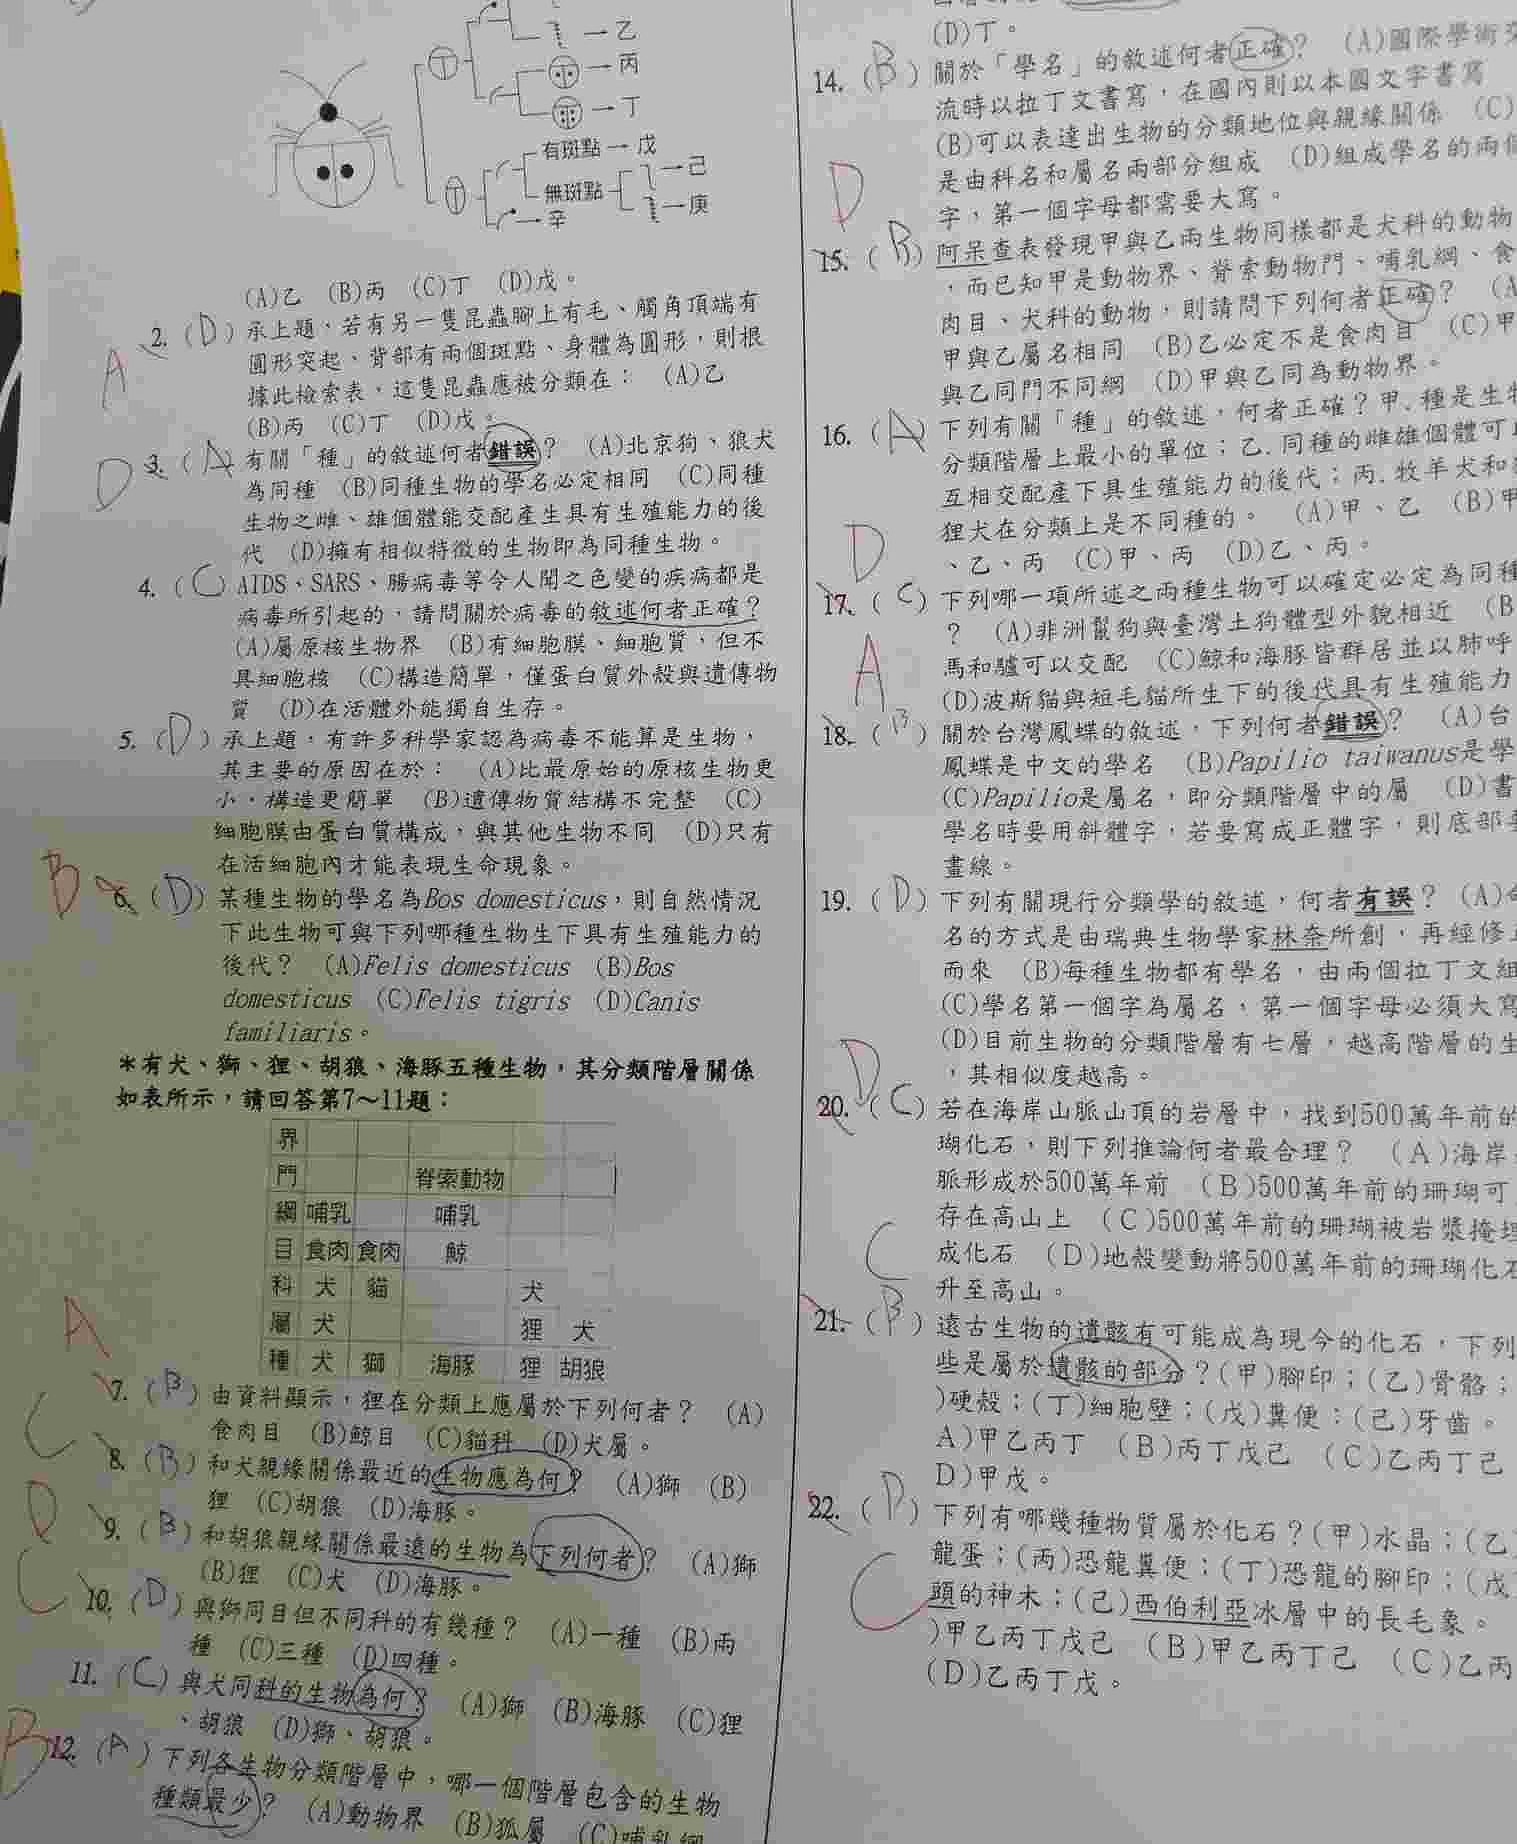 乙
丙
丁
有斑點 戊
無斑點 己
庚
辛
(A)乙 (B)丙 (C)丁 (D)戊。
A 2. (D) 承上題,若有另一隻昆蟲腳上有毛、觸角頂端有
圓形突起、背部有兩個斑點、身體為圓形,則根
據此檢索表,這隻昆蟲應被分類在: (A)乙
(B)丙 (C)丁 (D)戊。
D 3. (A) 有關「種」的敘述何者錯誤? (A)北京狗、狼犬
為同種 (B)同種生物的學名必定相同 (C)同種
生物之雌、雄個體能交配產生具有生殖能力的後
代 (D)擁有相似特徵的生物即為同種生物。
4. (C) AIDS、SARS、腸病毒等令人聞之色變的疾病都是
病毒所引起的,請問關於病毒的敘述何者正確?
(A)屬原核生物界 (B)有細胞膜、細胞質,但不
具細胞核 (C)構造簡單,僅蛋白質外殼與遺傳物
質 (D)在活體外能獨自生存。
5. (D) 承上題,有許多科學家認為病毒不能算是生物,
其主要的原因在於: (A)比最原始的原核生物更
小,構造更簡單 (B)遺傳物質結構不完整 (C)
細胞膜由蛋白質構成,與其他生物不同 (D)只有
在活細胞內才能表現生命現象。
B 6. (D) 某種生物的學名為Bos domesticus,則自然情況
下此生物可與下列哪種生物生下具有生殖能力的
後代? (A)Felis domesticus (B)Bos
domesticus (C)Felis tigris (D)Canis
familiaris。
*有犬、獅、狸、胡狼、海豚五種生物,其分類階層關係
如表所示,請回答第7~11題:
界
門 脊索動物
綱 哺乳 哺乳
目 食肉 食肉 鯨
科 犬 貓 犬
屬 犬 狸 犬
種 犬 獅 海豚 狸 胡狼
A 7. (B) 由資料顯示,狸在分類上應屬於下列何者? (A)
食肉目 (B)鯨目 (C)貓科 (D)犬屬。
C 8. (B) 和犬親緣關係最近的生物應為何? (A)獅 (B)
狸 (C)胡狼 (D)海豚。
D 9. (B) 和胡狼親緣關係最遠的生物為下列何者? (A)獅
(B)狸 (C)犬 (D)海豚。
C 10. (D) 與獅同目但不同科的有幾種? (A)一種 (B)兩
種 (C)三種 (D)四種。
11. (C) 與犬同科的生物為何? (A)獅 (B)海豚 (C)狸
、胡狼 (D)獅、胡狼。
B 12. (A) 下列各生物分類階層中,哪一個階層包含的生物
種類最少? (A)動物界 (B)狐屬
(D)丁。
14. (B) 關於「學名」的敘述何者正確? (A)國際學術
流時以拉丁文書寫,在國內則以本國文字書寫
(B)可以表達出生物的分類地位與親緣關係 (C)
是由科名和屬名兩部分組成 (D)組成學名的兩
字,第一個字母都需要大寫。
D 15. (B) 阿呆查表發現甲與乙兩生物同樣都是犬科的動物
,而已知甲是動物界、脊索動物門、哺乳綱、食
肉目、犬科的動物,則請問下列何者正確? (A
甲與乙屬名相同 (B)乙必定不是食肉目 (C)甲
與乙同門不同綱 (D)甲與乙同為動物界。
16. (A) 下列有關「種」的敘述,何者正確?甲.種是生
分類階層上最小的單位;乙.同種的雌雄個體可
互相交配產下具生殖能力的後代;丙.牧羊犬和
狸犬在分類上是不同種的。 (A)甲、乙 (B)甲
、乙、丙 (C)甲、丙 (D)乙、丙。
D 17. (C) 下列哪一項所述之兩種生物可以確定必定為同種
? (A)非洲鬣狗與臺灣土狗體型外貌相近 (B
馬和驢可以交配 (C)鯨和海豚皆群居並以肺呼
(D)波斯貓與短毛貓所生下的後代具有生殖能力
A 18. (B) 關於台灣鳳蝶的敘述,下列何者錯誤? (A)台
鳳蝶是中文的學名 (B)Papilio taiwanus是學
(C)Papilio是屬名,即分類階層中的屬 (D)書
學名時要用斜體字,若要寫成正體字,則底部
畫線。
19. (D) 下列有關現行分類學的敘述,何者有誤? (A)
名的方式是由瑞典生物學家林奈所創,再經修
而來 (B)每種生物都有學名,由兩個拉丁文組
(C)學名第一個字為屬名,第一個字母必須大寫
(D)目前生物的分類階層有七層,越高階層的生
,其相似度越高。
D 20. (C) 若在海岸山脈山頂的岩層中,找到500萬年前的
瑚化石,則下列推論何者最合理? (A)海岸
脈形成於500萬年前 (B)500萬年前的珊瑚可
存在高山上 (C)500萬年前的珊瑚被岩漿掩埋
成化石 (D)地殼變動將500萬年前的珊瑚化石
升至高山。
C 21. (B) 遠古生物的遺骸有可能成為現今的化石,下列
些是屬於遺骸的部分?(甲)腳印;(乙)骨骼;
)硬殼;(丁)細胞壁;(戊)糞便;(己)牙齒。
A)甲乙丙丁 (B)丙丁戊己 (C)乙丙丁己
D)甲戊。
22. (D) 下列有哪幾種物質屬於化石?(甲)水晶;(乙
龍蛋;(丙)恐龍糞便;(丁)恐龍的腳印;(戊
C 頭的神木;(己)西伯利亞冰層中的長毛象。
)甲乙丙丁戊己 (B)甲乙丙丁己 (C)乙丙
(D)乙丙丁戊。